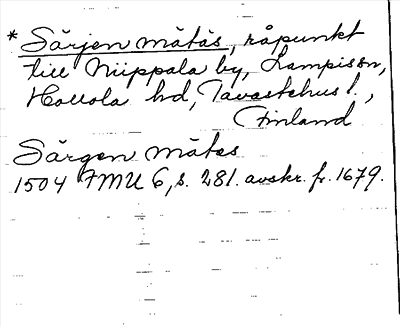 * Särjen mätäs, råpunkt
till Niippala by, Lampisson,
Hollola hd, Tavastehus l.,
Finland
Särgen mätes
1504 FMU 6, s. 281. avskr. fr. 1679.